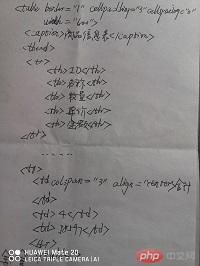 <table border="1" cellpadding="3" cellspacing="0"
width="600">
<caption>商品信息表</caption>
<thead>
<tr>
<th>ID</th>
<th>名称</th>
<th>数量</th>
<th>单价</th>
<th></th>
</tr>
......
<tr>
<td colspan="3" align="center">合计
</td>
<td>4</td>
<td></td>
HUAWEI Mate 20
LEICA TRIPLE CAMERA | AI
php 中文网